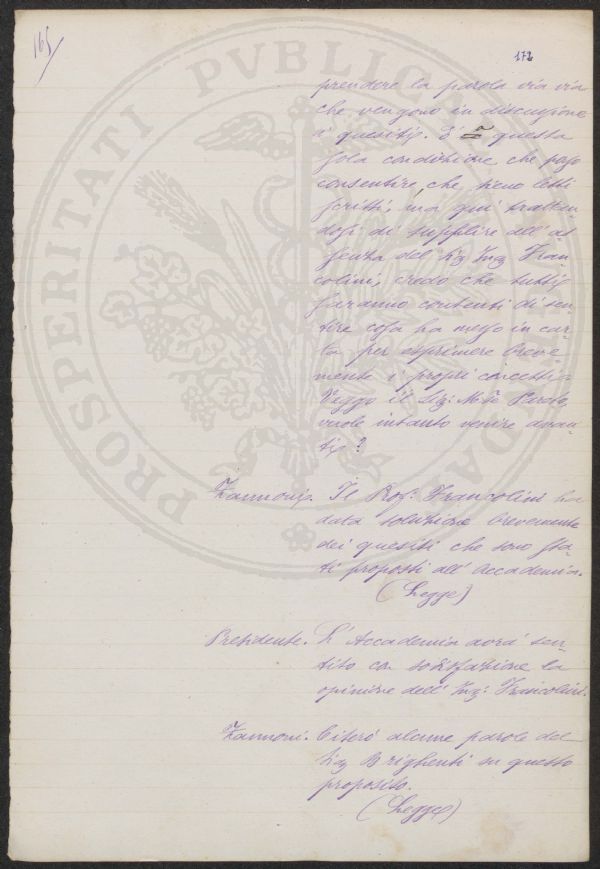 165
172
PROSPERITATI PVBLICAE
prendere la parola via via
che vengono in discussione
i quesiti. E' questa
sola condizione che posso
consentire, che sieno letti
scritti, ma qui trattan-
dosi di supplire all' as-
senza del Sig Ing Fran-
colini, credo che tutti
saranno contenti di sen-
tire cosa ha messo in car-
ta per esprimere breve-
mente i propri concetti.
Veggo il Sig:
vuole intanto venire avan-
ti?
Zannoni. Il Prof: Francolini ha
data soluzione brevemente
dei quesiti che sono sta-
ti proposti all' Accademia.
(Legge)
Presidente. L' Accademia avrà sen-
tito con sodisfazione la
opinione dell' Ing: Francolini.
Zannoni. Citerò alcune parole del
Sig Brighenti su questo
proposito.
(Legge)